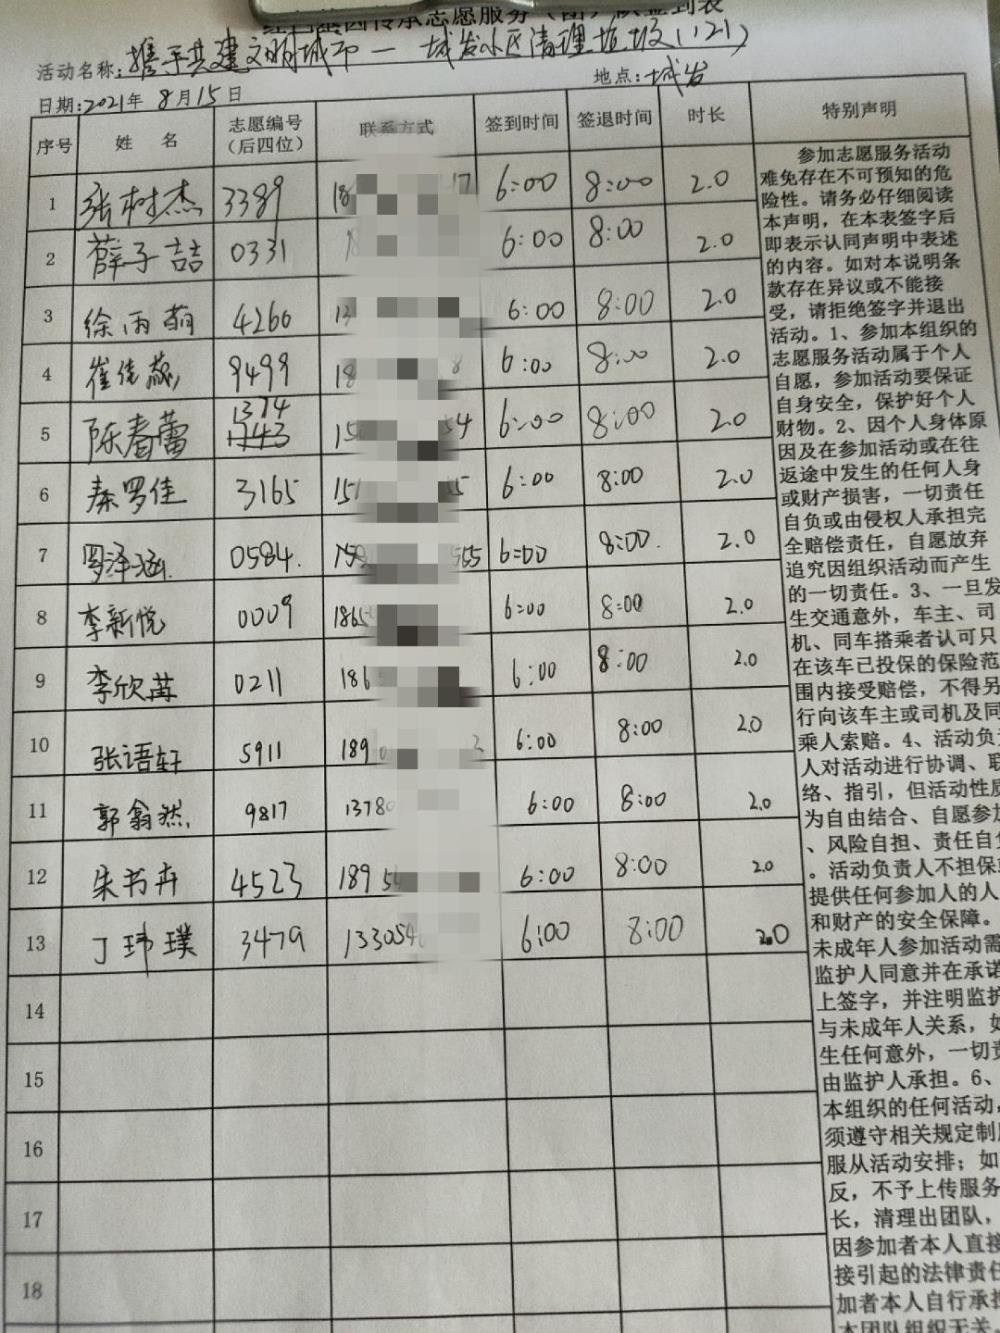 志愿服务
活动名称：携手共建文明城市—城发小区清理垃圾(121)
日期：2021年8月15日 地点：城发
序号 姓 名 志愿编号（后四位） 联系方式 签到时间 签退时间 时长 特别声明
1 张树杰 3389 186 17 6:00 8:00 2.0
2 薛子喆 0331 1 6:00 8:00 2.0
3 徐雨萌 4260 13 6:00 8:00 2.0
4 崔佳 9499 18 8 6:00 8:00 2.0
5 陈春蕾 1374 1143 15 54 6:00 8:00 2.0
6 秦罗佳 3165 151 55 6:00 8:00 2.0
7 罗泽涵 0584 150 555 6:00 8:00 2.0
8 李新悦 0009 1865 6:00 8:00 2.0
9 李欣苒 0211 186 6:00 8:00 2.0
10 张语轩 5911 189 2 6:00 8:00 2.0
11 郭翕然 9817 1378 6:00 8:00 2.0
12 朱书卉 4523 18954 6:00 8:00 2.0
13 丁玮璞 3479 1330540 6:00 8:00 2.0
14
15
16
17
18
参加志愿服务活动
难免存在不可预知的危
险性。请务必仔细阅读
本声明，在本表签字后
即表示认同声明中表述
的内容。如对本说明条
款存在异议或不能接
受，请拒绝签字并退出
活动。1、参加本组织的
志愿服务活动属于个人
自愿，参加活动要保证
自身安全，保护好个人
财物。2、因个人身体原
因及在参加活动或在往
返途中发生的任何人身
或财产损害，一切责任
自负或由侵权人承担完
全赔偿责任，自愿放弃
追究因组织活动而产生
的一切责任。3、一旦发
生交通意外，车主、司
机、同车搭乘者认可只
在该车已投保的保险范
围内接受赔偿，不得另
行向该车主或司机及同
乘人索赔。4、活动负责
人对活动进行协调、联
络、指引，但活动性质
为自由结合、自愿参加
、风险自担、责任自负
。活动负责人不担保或
提供任何参加人的人
和财产的安全保障。
未成年人参加活动需
监护人同意并在承诺
上签字，并注明监护
与未成年人关系，如
生任何意外，一切责
由监护人承担。6、
本组织的任何活动，
须遵守相关规定制度
服从活动安排；如
反，不予上传服务
长，清理出团队，
因参加者本人直接
接引起的法律责任
加者本人自行承担
本团队组织无关。